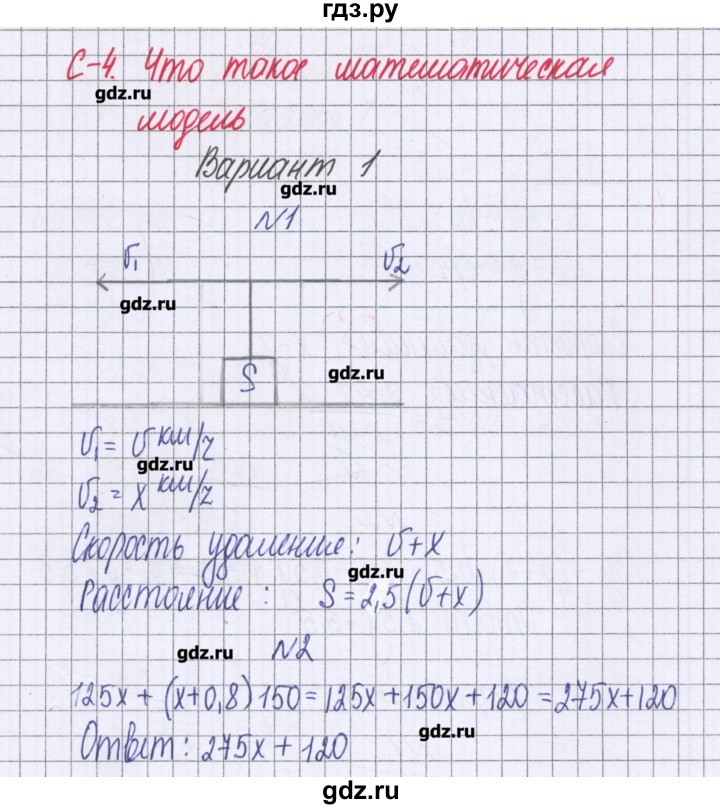 гдз.ру
С-4. Что такое математическая
gdz.ru
модель
Вариант 1
gdz.ru
N1
υ₁ υ₂
gdz.ru
gdz.ru
S
υ₁ = υ км/ч
gdz.ru
υ₂ = x км/ч
Скорость удаление: υ+x
gdz.ru
Расстояние : S = 2,5(υ+x)
gdz.ru N2
125x + (x+0,8)150 = 125x+150x+120 = 275x+120
gdz.ru
Ответ: 275x + 120
gdz.ru